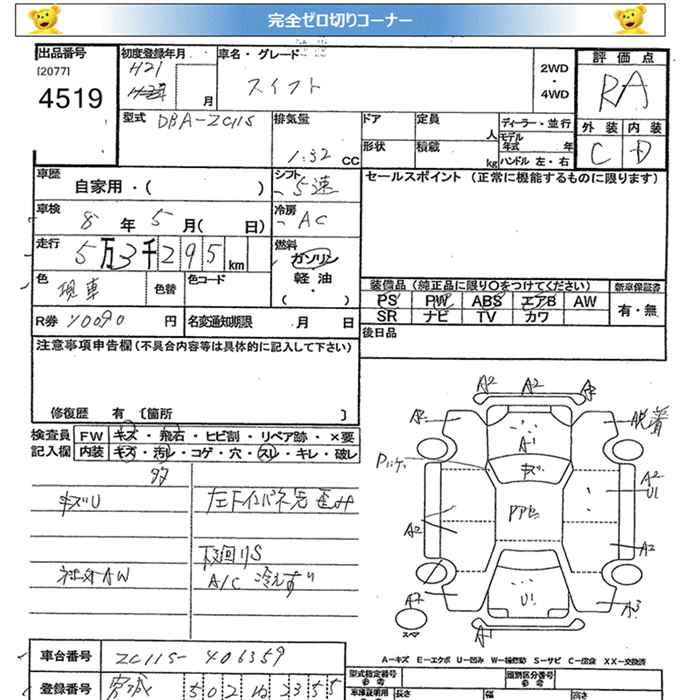 完全ゼロ切りコーナー
出品番号 初度登録年月 車名・グレード 評価点
[2077] H21 2WD
4519 月 スイフト ・ RA
4WD
型式 DBA-ZC11S 排気量 ドア 定員 ディーラー・並行 外装 内装
1.32 cc 人 モデル年式 年 C D
形状 積載 kg ハンドル 左・右
車歴 自家用・( ) シフト 5速 セールスポイント (正常に機能するものに限ります)
車検 8年 5月( 日) 冷房 AC
走行 5万3千295 km 燃料 ガソリン
軽油
・( )
色 現車 色替 色コード
装備品 (純正品に限り○をつけてください) 新車保証書
PS PW ABS エアB AW 有・無
SR ナビ TV カワ
R券 10090 円 名変通知期限 月 日
後日品
注意事項申告欄(不具合内容等は具体的に記入して下さい)
修復歴 有 〔箇所 〕
検査員 FW キズ・飛石・ヒビ割・リペア跡・×要
記入欄 内装 キズ・汚レ・コゲ・穴・スレ・キレ・破レ
キズU 左Fインパネ先歪み
下廻りS
社外AW A/C 冷えず
A2 A2
A2 脱着
A1
キズ
A2
U1
A2 A2
U1
A2 A3
スペア A1
A-キズ E-エクボ U-凹み W-補修跡 S-サビ C-腐食 XX-交換済
車台番号 ZC11S-406359 型式指定番号 類別区分番号
登録番号 宮城 502 2355 長さ 幅 高さ